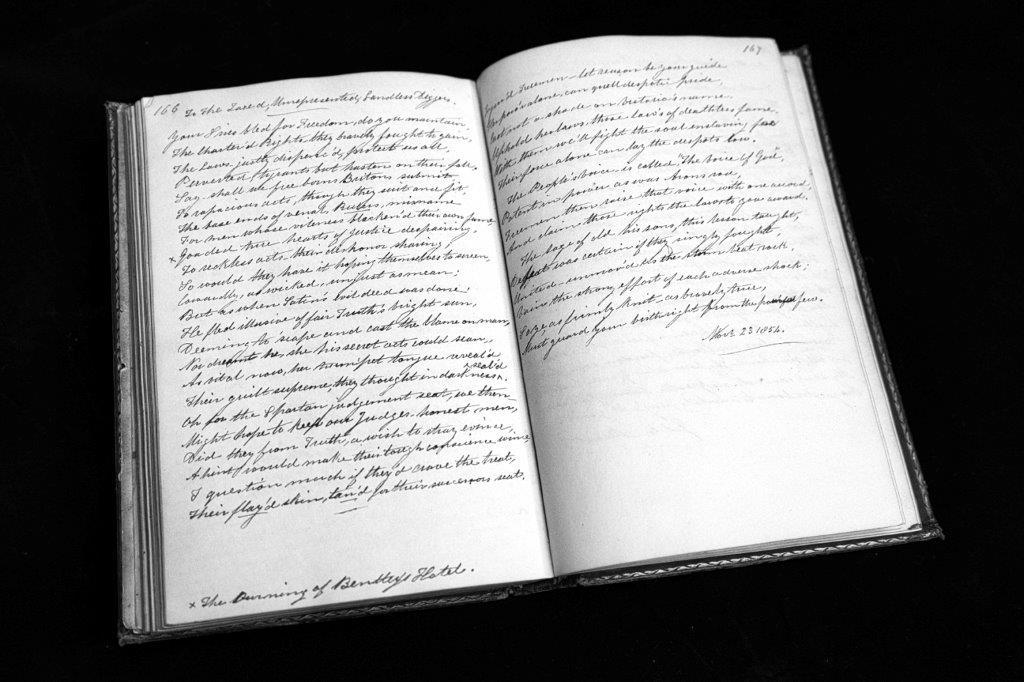 166
To The Taxed, Unrepresented, Landless Diggers.
Your Sires bled for Freedom, do you maintain,
The Charter'd Rights, they bravely fought to gain,
The Laws justly dispens'd, protect us all,
Perverted, tyrants but hasten on their fall,
Say, shall we free born Britons submit
To rapacious acts, though they suit and fit,
The base ends of venal Rulers, misname
For men whose vileness blacken'd their own fame,
x Goaded true hearts of justice despairing,
To reckless acts, their dishonor sharing
So would they have it hoping themselves to screen
Cowardly, as wicked, unjust as mean;
But as when Satin's evil deed was done
He fled illusive of fair Truth's bright sun,
Deeming to 'scape and cast the blame on man,
Nor dreamt he, she his secret acts could scan,
As viol now, her trumpet tongue reveal'd
Their guilt supreme, they thought in darkness seal'd.
Oh for the Spartan judgement seat, we then
Might hope to keep our Judges honest men,
Did they from Truth, a wish to stray evince,
A hint would make their tough conscience wince
I question much if they'd crave the treat,
Their flay'd skin, tan'd for their successors seat.
x The Burning of Bentley's Hotel.
167
Freemen let reason be your guide
alone, can quell despotic Pride
not a shade on Victoria's name
Uphold her laws, those laws of deathless fame,
With them we'll fight the soul enslaving foe
Their force alone can lay the despots low.
The People's voice is called "The Voice of God",
Potent in power as was Arons rod,
Freemen then raise that voice with one accord,
And claim those rights the laws to you award.
The Sage of old his sons, this lesson taught,
Defeat was certain if they singly fought,
United - unmov'd as the storm beat rock,
Vain the strong effort of each adverse shock;
So ye as firmly knit as bravely true,
Must guard your birthright from the few.
Novr. 23 1854.